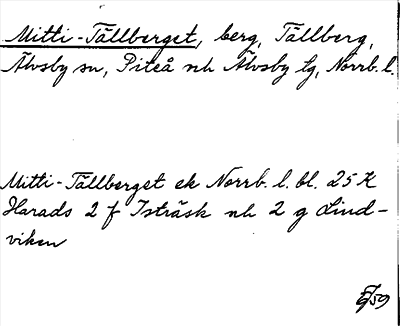 Mitti-Tällberget, berg, Tällberg,
Älvsby sn, Piteå nh Älvsby tg, Norrb. l.
Mitti-Tällberget ek Norrb. l. bl. 25 K
Harads 2 f Isträsk nh 2 g Lind-
viken
/59